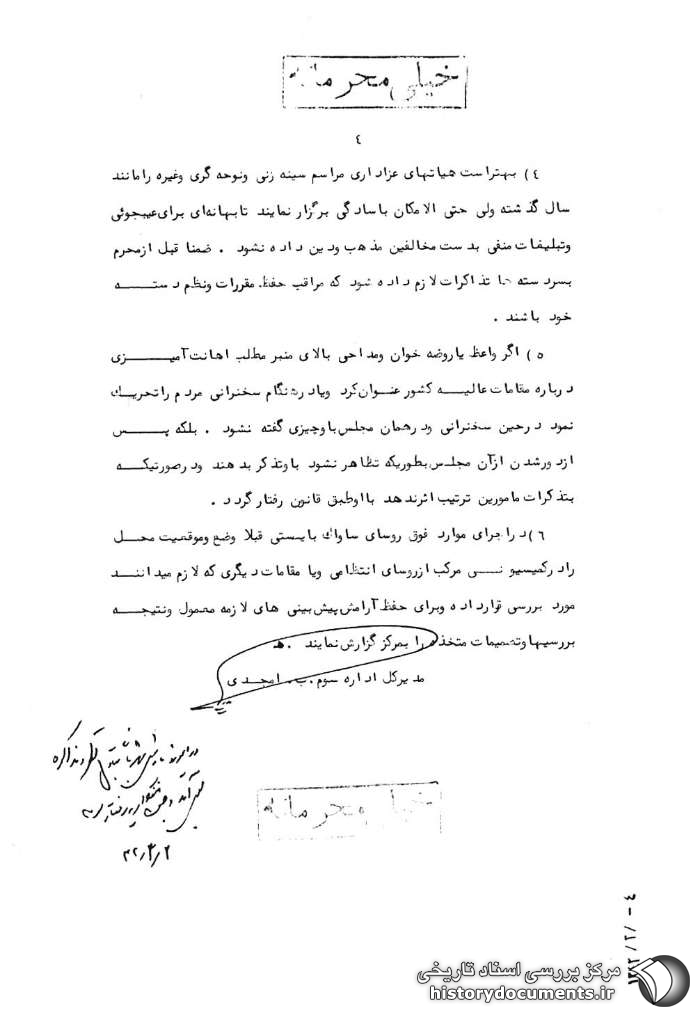 خیلی محرمانه
٤
٤) بهتراست هیاتهای عزاداری مراسم سینه زنی ونوحه گری وغیره رامانند
سال گذشته ولی حتی الامکان باسادگی برگزار نمایند تابهانه‌ای برای عیبجوئی
وتبلیغات منفی بدست مخالفین مذهب ودین داده نشود . ضمنا قبل ازمحرم
بسردسته ها تذاکرات لازم داده شود که مراقب حفظ مقررات ونظم دستــــه
خود باشند .
٥) اگر واعظ یاروضه خوان ومداحی بالای منبر مطلب اهانت آمیــــزی
درباره مقامات عالیــه کشور عنوان کرد ویادرهنگام سخنرانی مردم راتحریك
نمود درحین سخنرانی ودرهمان مجلس باوچیزی گفته نشود . بلکه پــس
ازدورشدن ازآن مجلس بطوریکه تظاهر نشود باوتذکر بدهند ودرصورتیکــه
بتذکرات مامورین ترتیب اثرندهد بااوطبق قانون رفتارگردد .
٦)دراجرای موارد فوق روسای ساواك بایستی قبلا وضع وموقعیت محــل
رادرکمیسیونــی مرکب ازروسای انتظامی ویا مقامات دیگری که لازم میداننــد
مورد بررسی قرارداده وبرای حفظ آرامش پیش بینی های لازمه معمول ونتیجــه
بررسیهاوتصمیمات متخذه را بمرکز گزارش نمایند .ﻫ
مدیرکل اداره سوم .ب. امجـدی
۴۲٫۳٫۲
خیلی محرمانه
مرکز بررسی اسناد تاریخی
historydocuments.ir